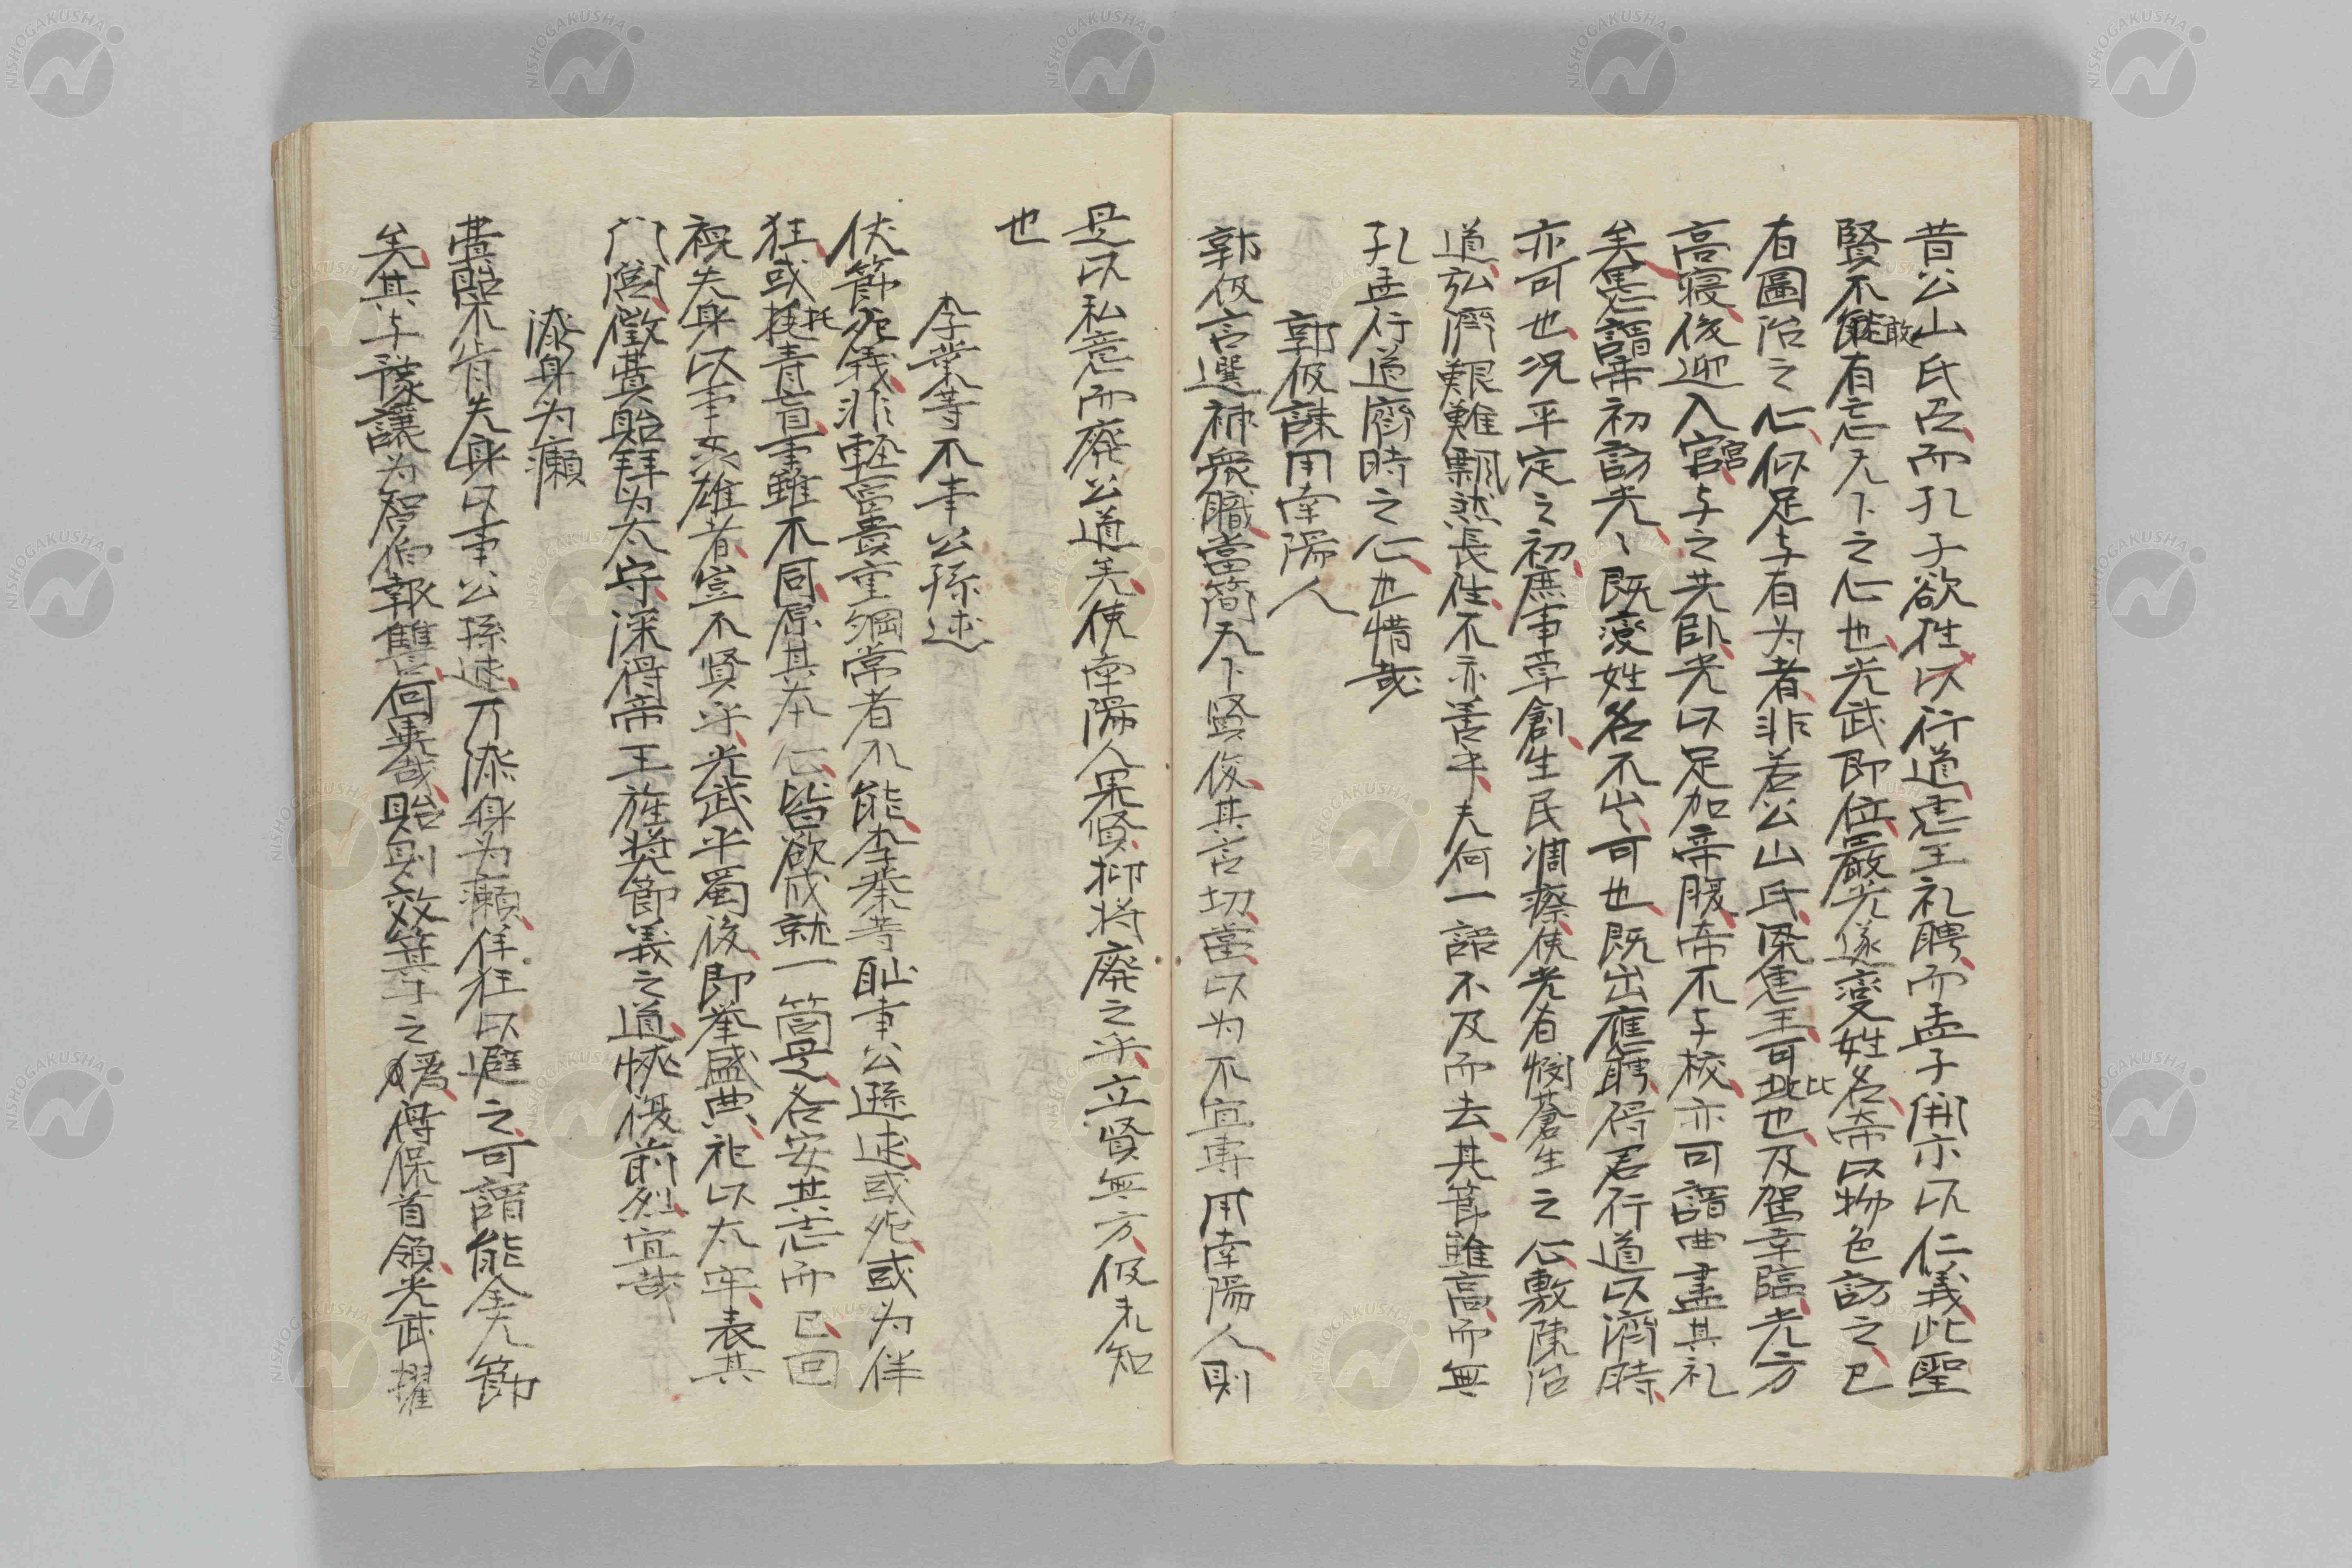 昔公山氏召而孔子欲往以行道惠王礼聘而孟子開示以仁義此聖
賢不能敢有忘天下之心也光武即位嚴光遂變姓名帝以物色訪之已
有圖治之心何足与有为者非若公山氏梁惠王可此比也及駕幸臨光方
高寢後迎入官宮与之共卧光以足加帝腹帝不与校亦可謂曲盡其礼
矣愚謂帝初訪光〻既變姓名不出可也既出應聘得君行道以濟時
亦可也況平定之初庶事草創生民凋瘵使光有憫蒼生之心敷陳治
道弘濟艱難飄然長往不亦善乎夫何一語不及而去其節雖高而無
孔孟行道濟時之心也惜哉
郭伋諌用南陽人
郭伋言選補衆職當簡天下賢俊其言切當以为不宜專用南陽人則
是以私意而廢公道矣使南陽人果賢抑将廢之乎立賢無方伋未知
也
李業等不事公孫述
伏節死義非軽富貴重綱常者不能李業等耻事公遜述或死或为佯
狂或挺托青盲事雖不同原其本心皆欲成就一箇是各安其志而已回
視失身以事奸雄者豈不賢乎光武平蜀後即举盛典祀以太牢表其
门閭徵費貽拜为太守深得帝王旌奬節義之道恢復前烈宜哉
漆身为癩
費貽不肯失身以事公孫述乃漆身为癩佯狂以避之可謂能全大節
矣其与豫讓为智伯報讐何異哉貽則效箕子之爲得保首領光武擢